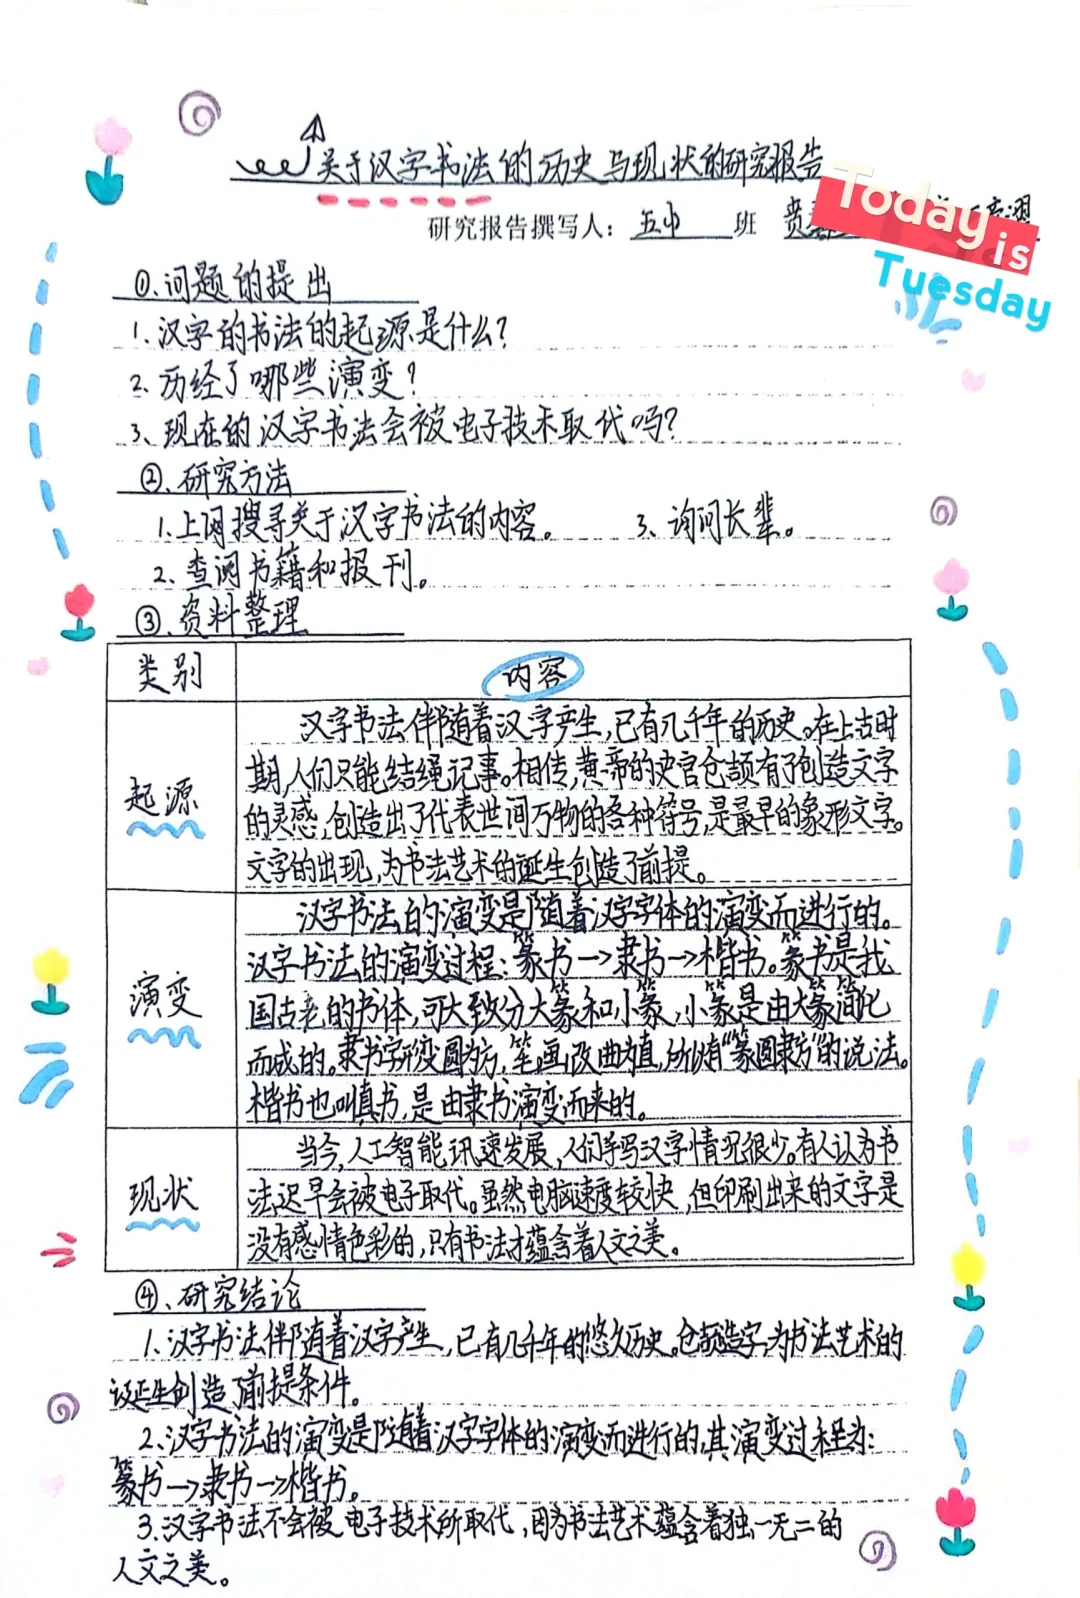 关于汉字书法的历史与现状的研究报告
研究报告撰写人：五中 班
Today is
Tuesday
①、问题的提出
1、汉字的书法的起源是什么？
2、历经了哪些演变？
3、现在的汉字书法会被电子技术取代吗？
②、研究方法
1、上网搜寻关于汉字书法的内容。 3、询问长辈。
2、查阅书籍和报刊。
③、资料整理
类别 内容
起源
汉字书法伴随着汉字产生，已有几千年的历史。在上古时
期，人们只能结绳记事。相传，黄帝的史官仓颉有了创造文字
的灵感，创造出了代表世间万物的各种符号，是最早的象形文字。
文字的出现，为书法艺术的诞生创造了前提。
演变
汉字书法的演变是随着汉字字体的演变而进行的。
汉字书法的演变过程：篆书→隶书→楷书。篆书是我
国古老的书体，可大致分大篆和小篆，小篆是由大篆简化
而成的。隶书字形变圆为方，笔画改曲为直，所以有“篆圆隶方”的说法。
楷书也叫真书，是由隶书演变而来的。
现状
当今，人工智能讯速发展，人们手写汉字情况很少。有人认为书
法迟早会被电子取代。虽然电脑速度较快，但印刷出来的文字是
没有感情色彩的，只有书法才蕴含着人文之美。
④、研究结论
1、汉字书法伴随着汉字产生，已有几千年的悠久历史。仓颉造字为书法艺术的
诞生创造了前提条件。
2、汉字书法的演变是随着汉字字体的演变而进行的，其演变过程为：
篆书→隶书→楷书。
3、汉字书法不会被电子技术所取代，因为书法艺术蕴含着独一无二的
人文之美。